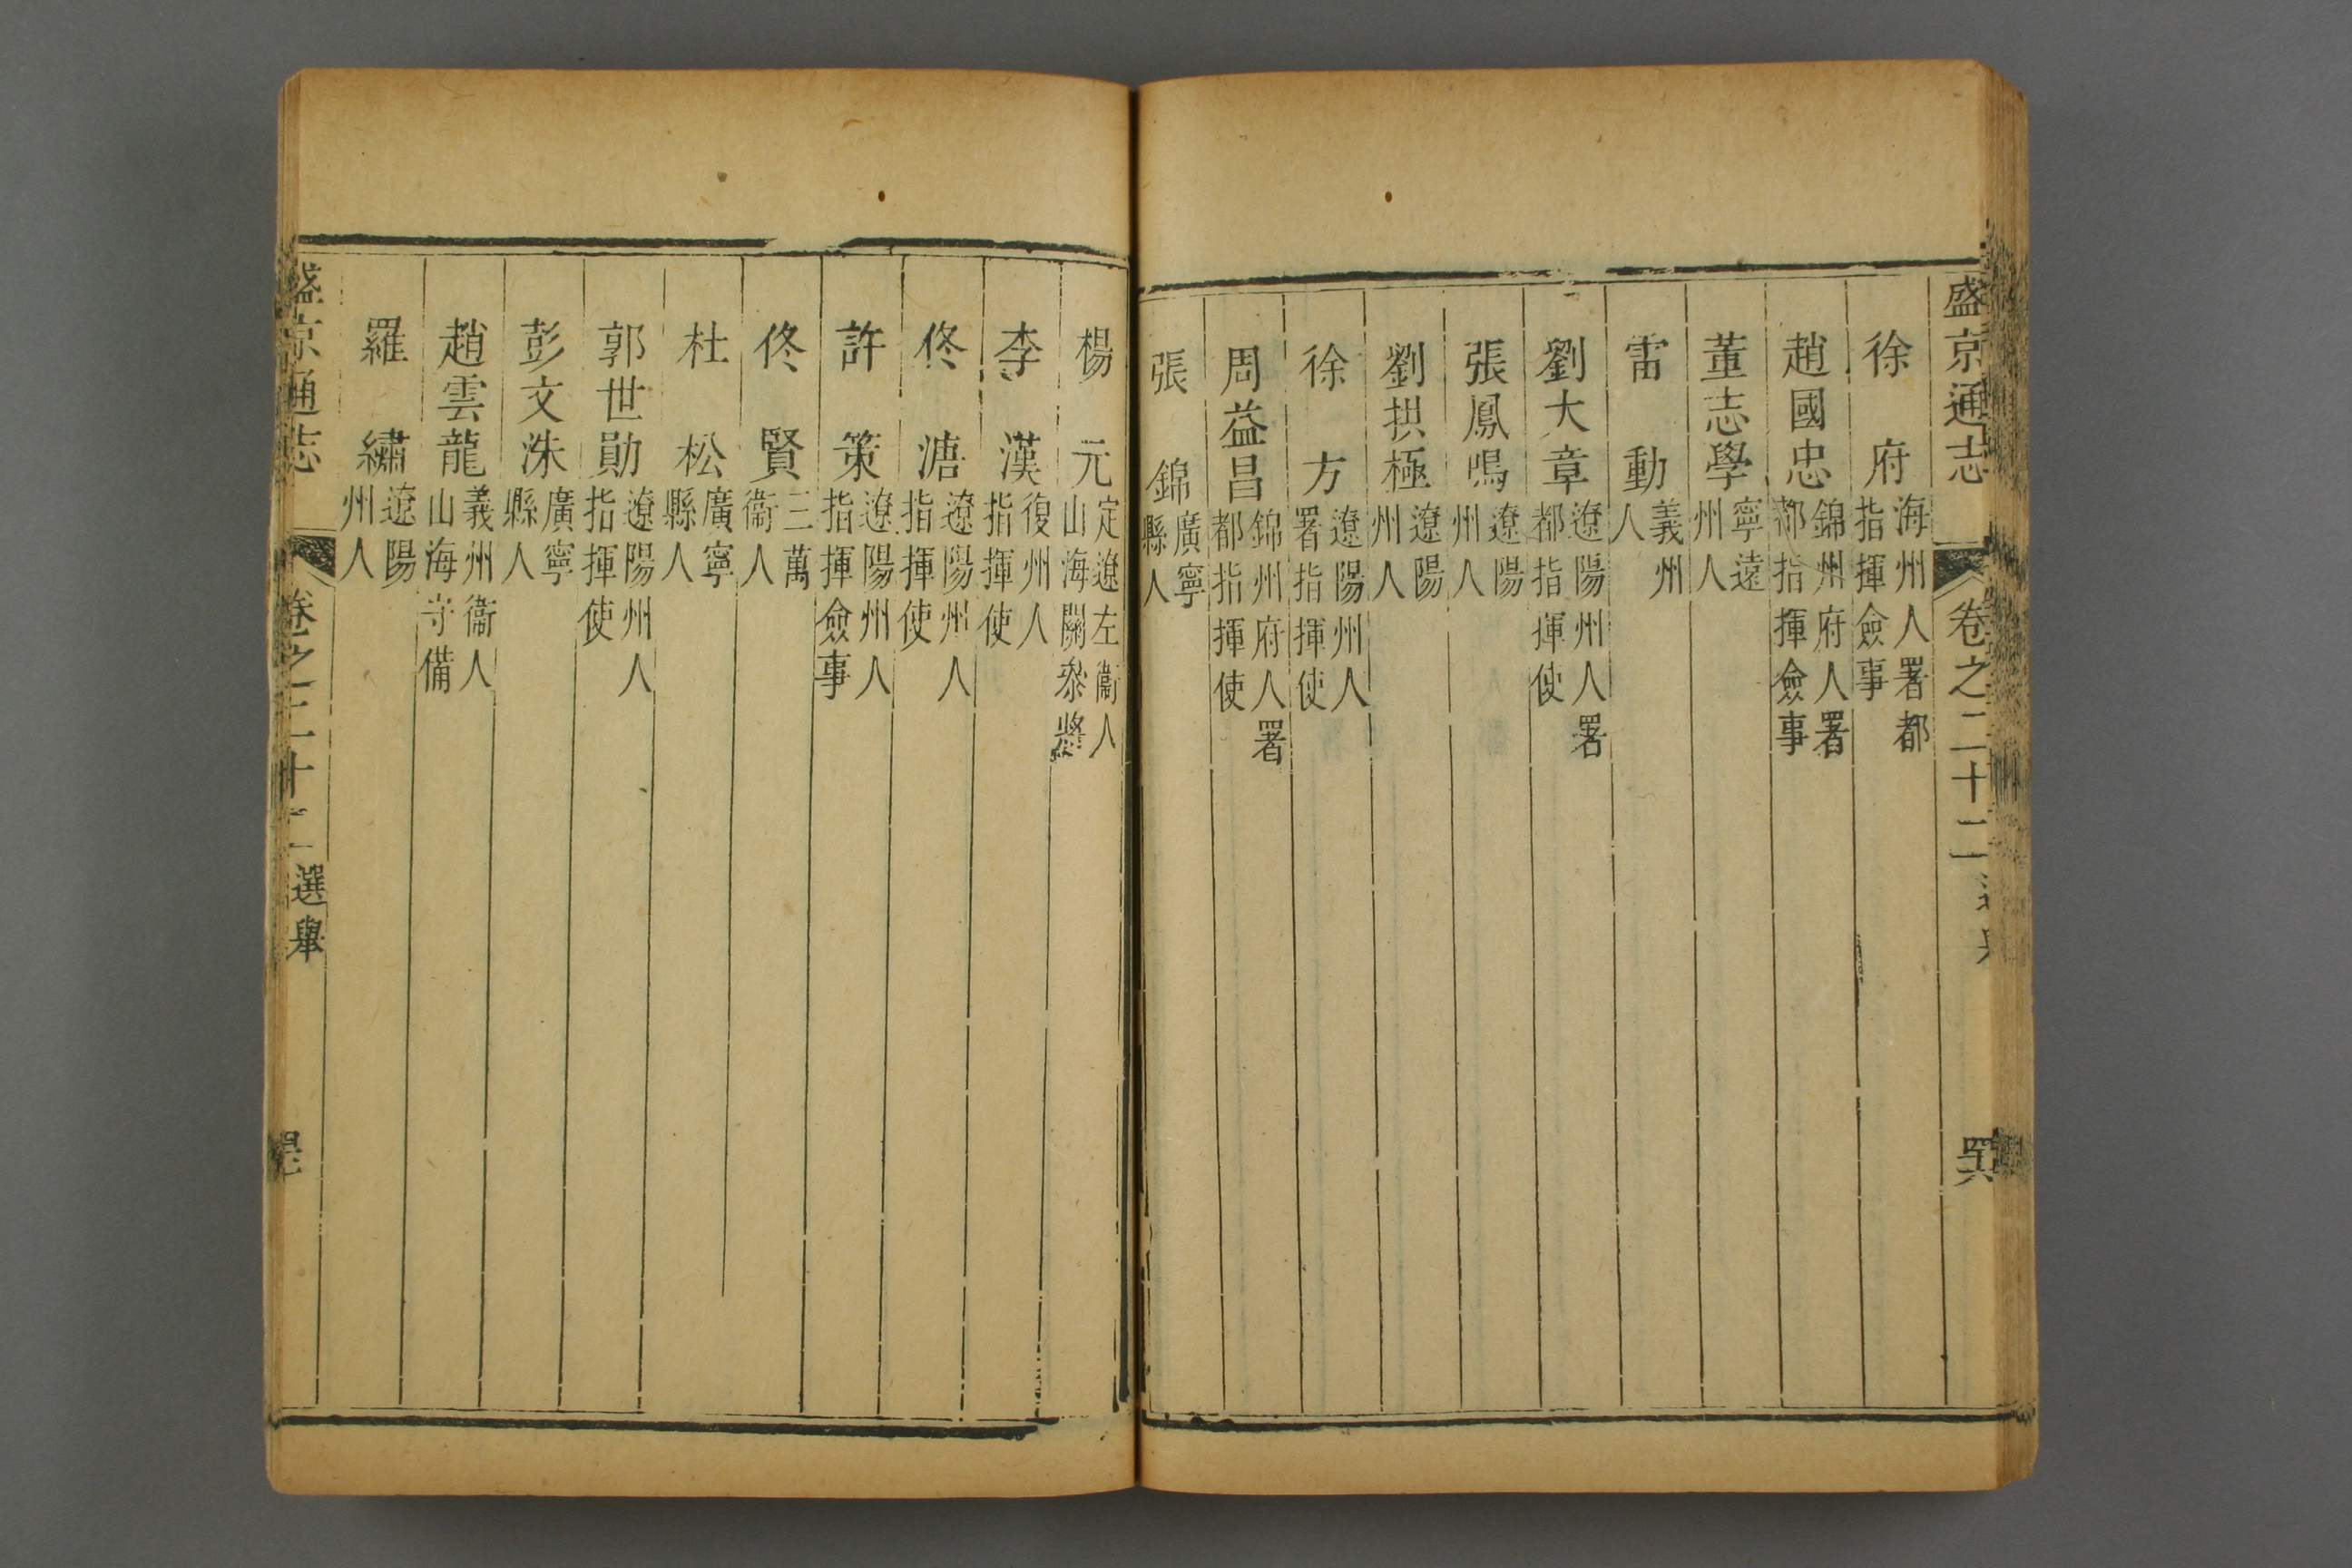 盛京通志 卷之二十二 選舉 四六
徐 府 海州人署都指揮僉事
趙國忠 錦州府人署都指揮僉事
董志學 寧遠州人
雷 動 義州人
劉大章 遼陽州人署都指揮使
張鳳鳴 遼陽州人
劉拱極 遼陽州人
徐 方 遼陽州人署指揮使
周益昌 錦州府人署都指揮使
張 錦 廣寧縣人
楊 元 定遼左衞人山海關叅將
李 漢 復州人指揮使
佟 溏 遼陽州人指揮使
許 策 遼陽州人指揮僉事
佟 賢 三萬衞人
杜 松 廣寧縣人
郭世勛 遼陽州人指揮使
彭文洙 廣寧縣人
趙雲龍 義州衞人山海守備
羅 繡 遼陽州人
盛京通志 卷之二十二 選舉